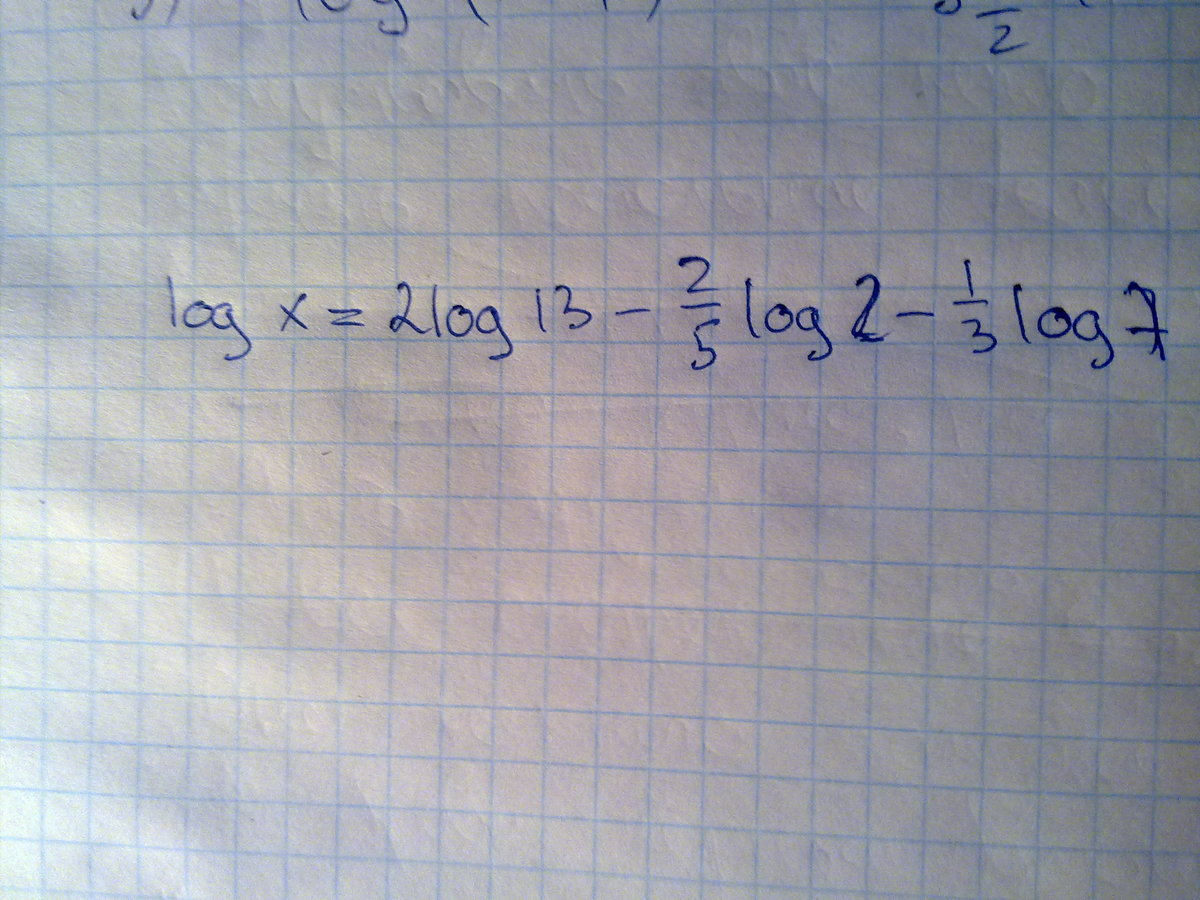 log x = 2 log 13 - 2/5 log 2 - 1/3 log 7